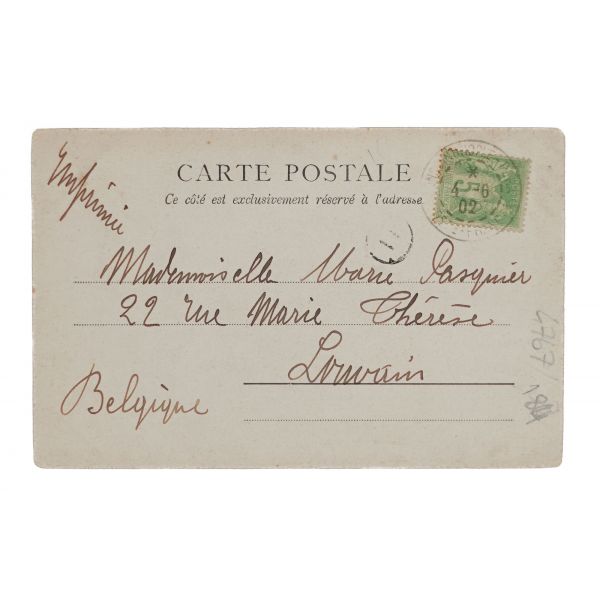 Imprimé
CARTE POSTALE
Ce côté est exclusivement réservé à l'adresse
4 -6
02
Mademoiselle Marie Pasquier
22 rue Marie Thérèse
Louvain
Belgique